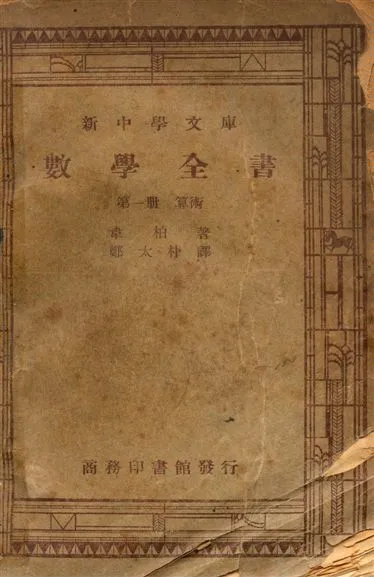 新中學文庫
數學全書
第一册 算術
韋柏著
鄭太朴譯
商務印書館發行